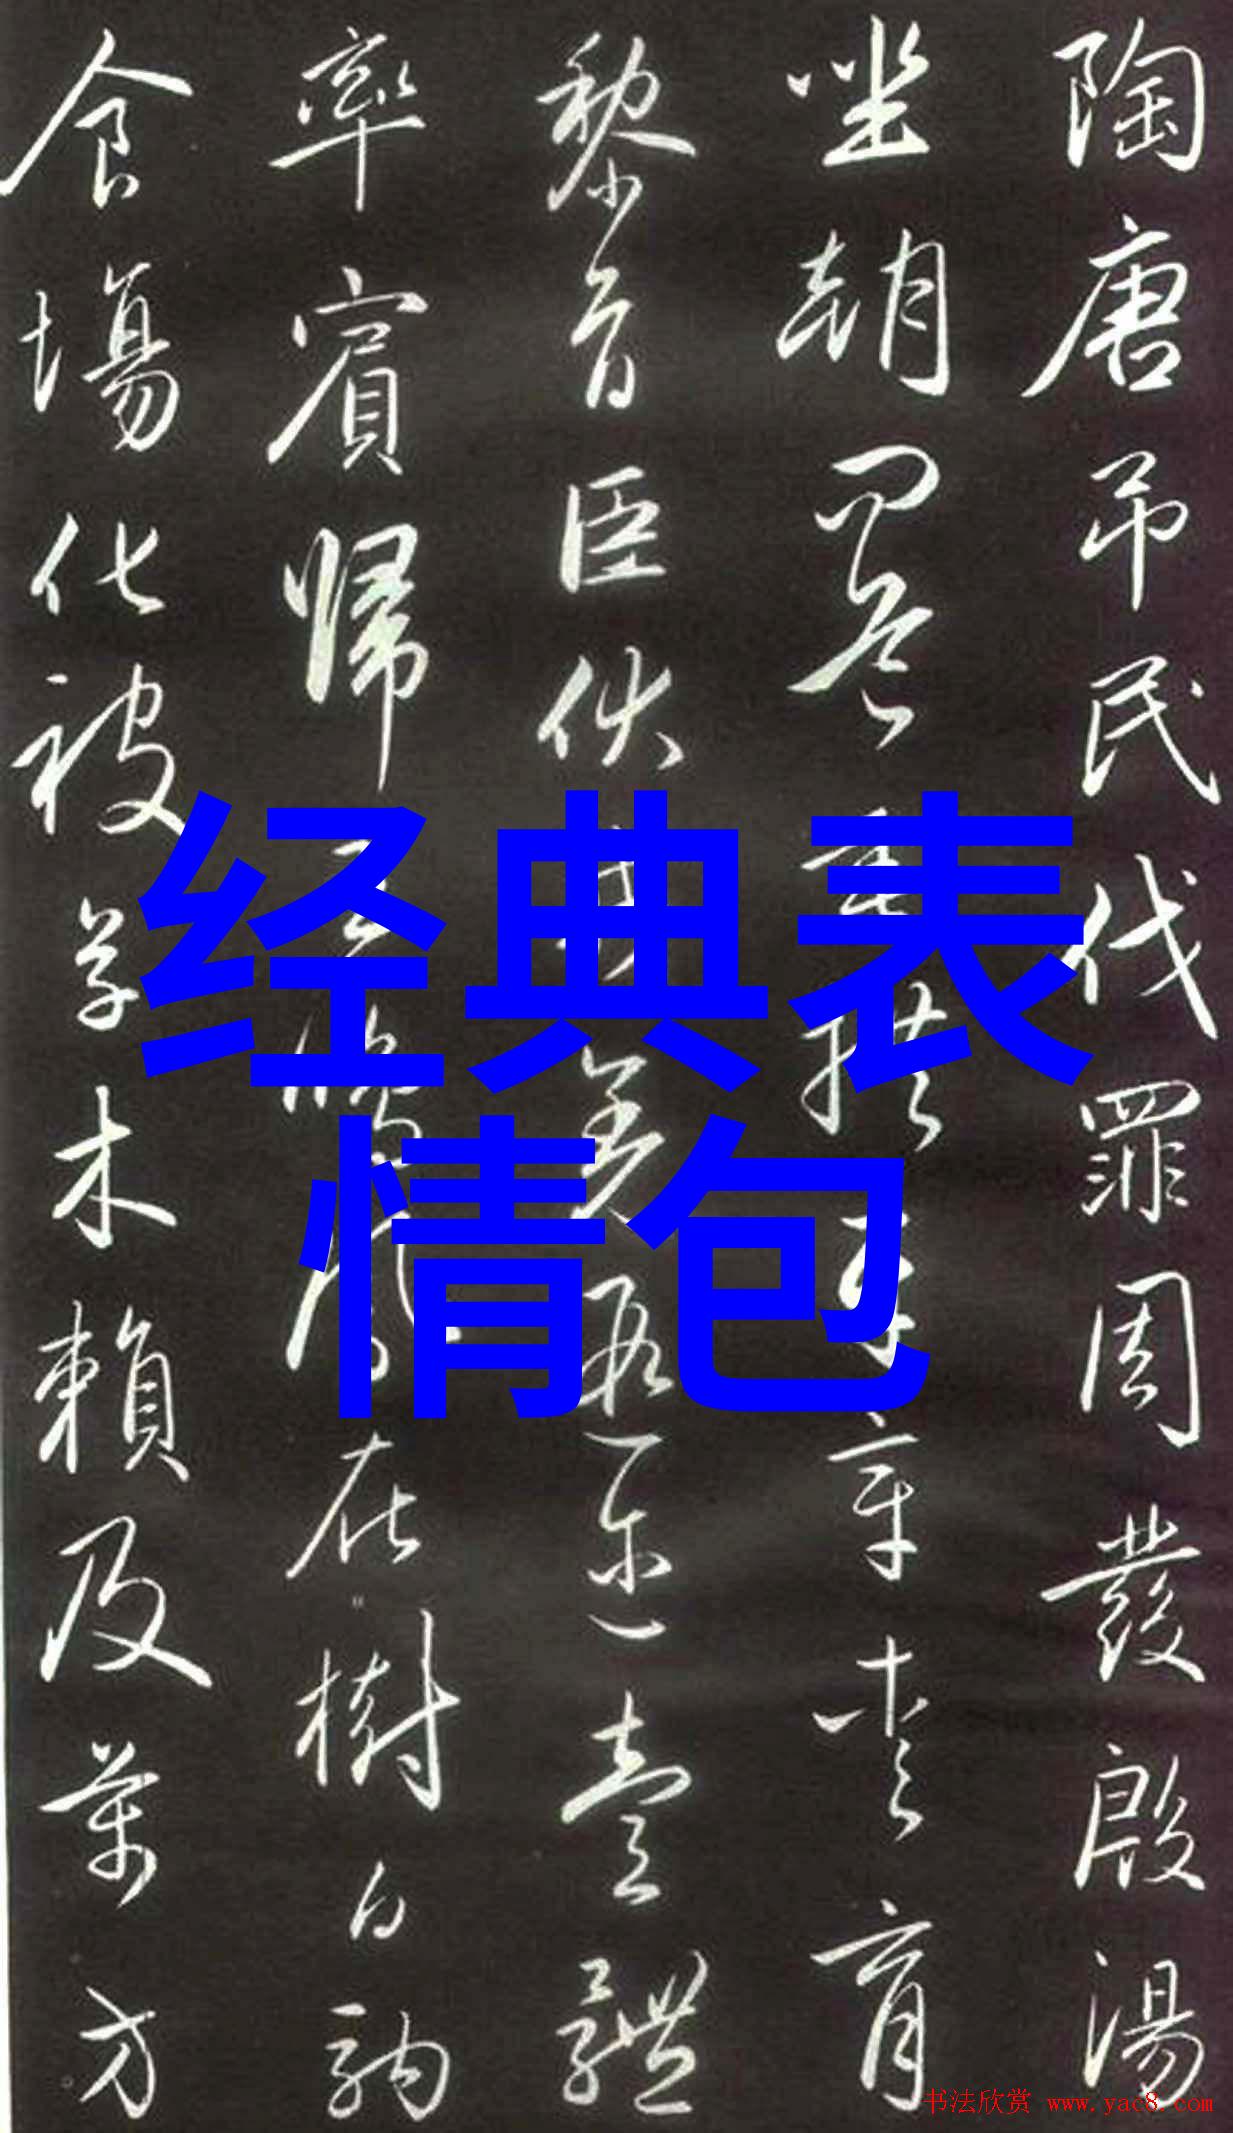 陶唐吊民伐罪周發殷湯
坐朝問道垂拱平章愛育
黎首臣伏戎羌遐邇壹體
率賓歸王鳴鳳在樹白駒
食場化被草木賴及萬方
经典表
情包
书法欣赏 www.yac8.com